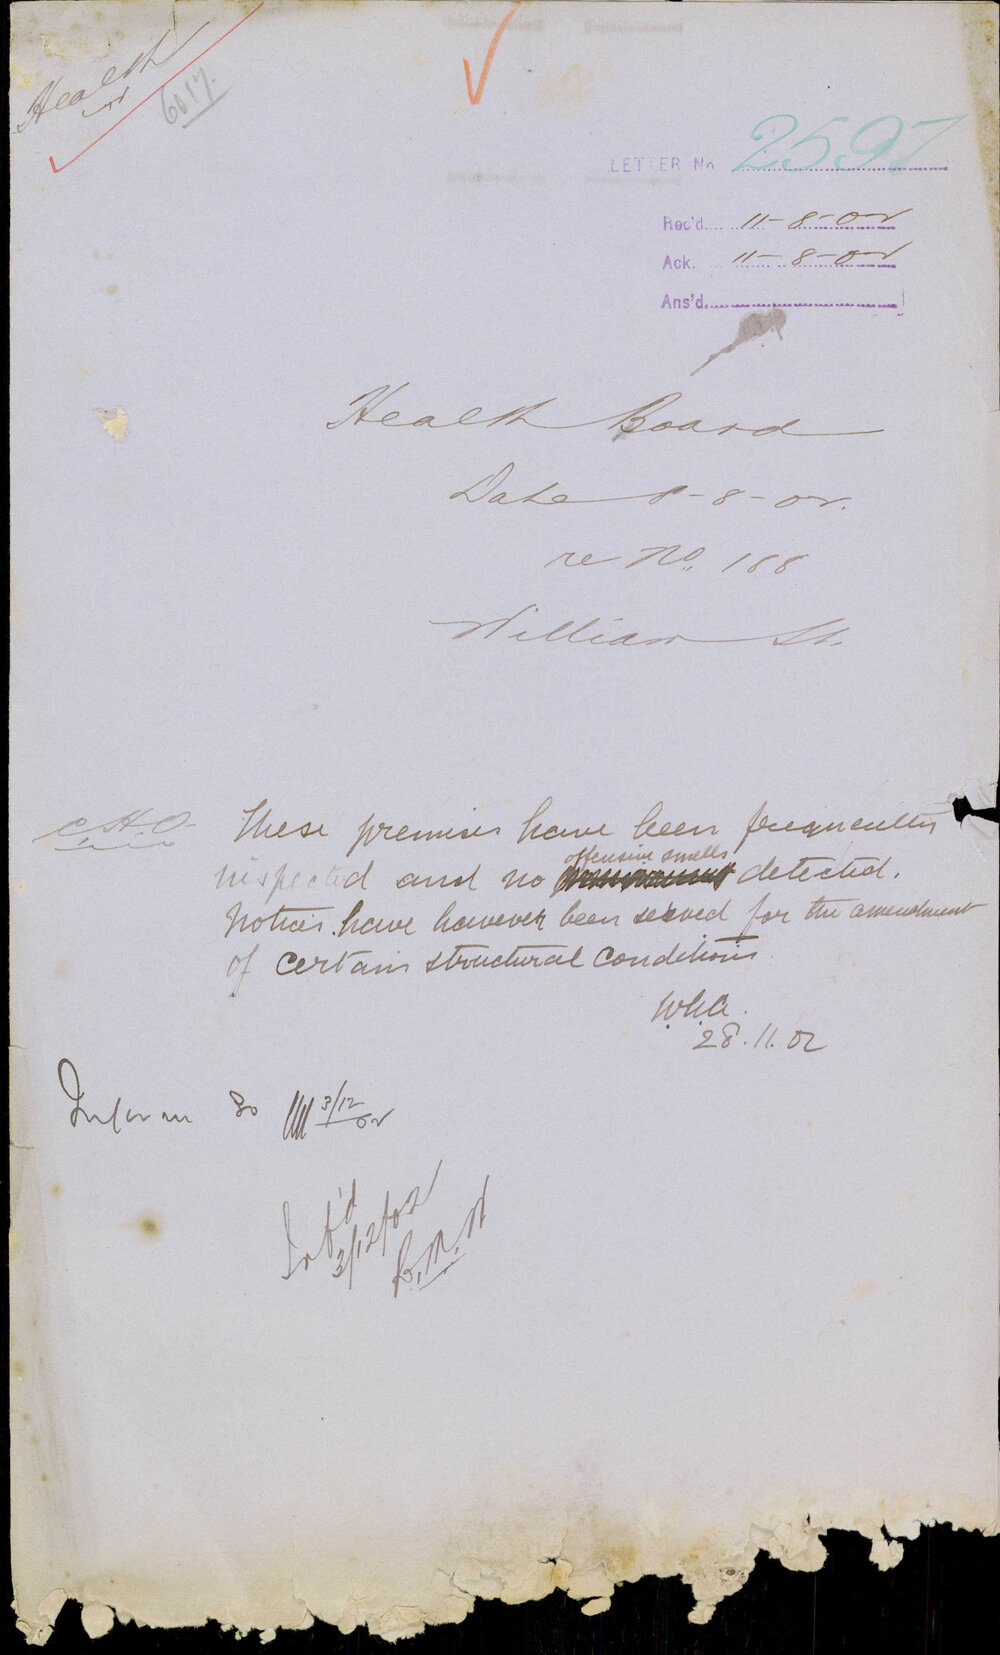 Health
6017.
LETTER No 2597
Rec'd. 11-8-02
Ack. 11-8-02
Ans'd.
Health Board
Date 8-8-02.
re No. 188
William St.
C.H.O. These premises have been frequently
inspected and no offensive smells detected.
Notices have however been served for the amendment
of certain structural conditions.
28.11.02
Inform So 3/12/02
Inf'd
3/12/02